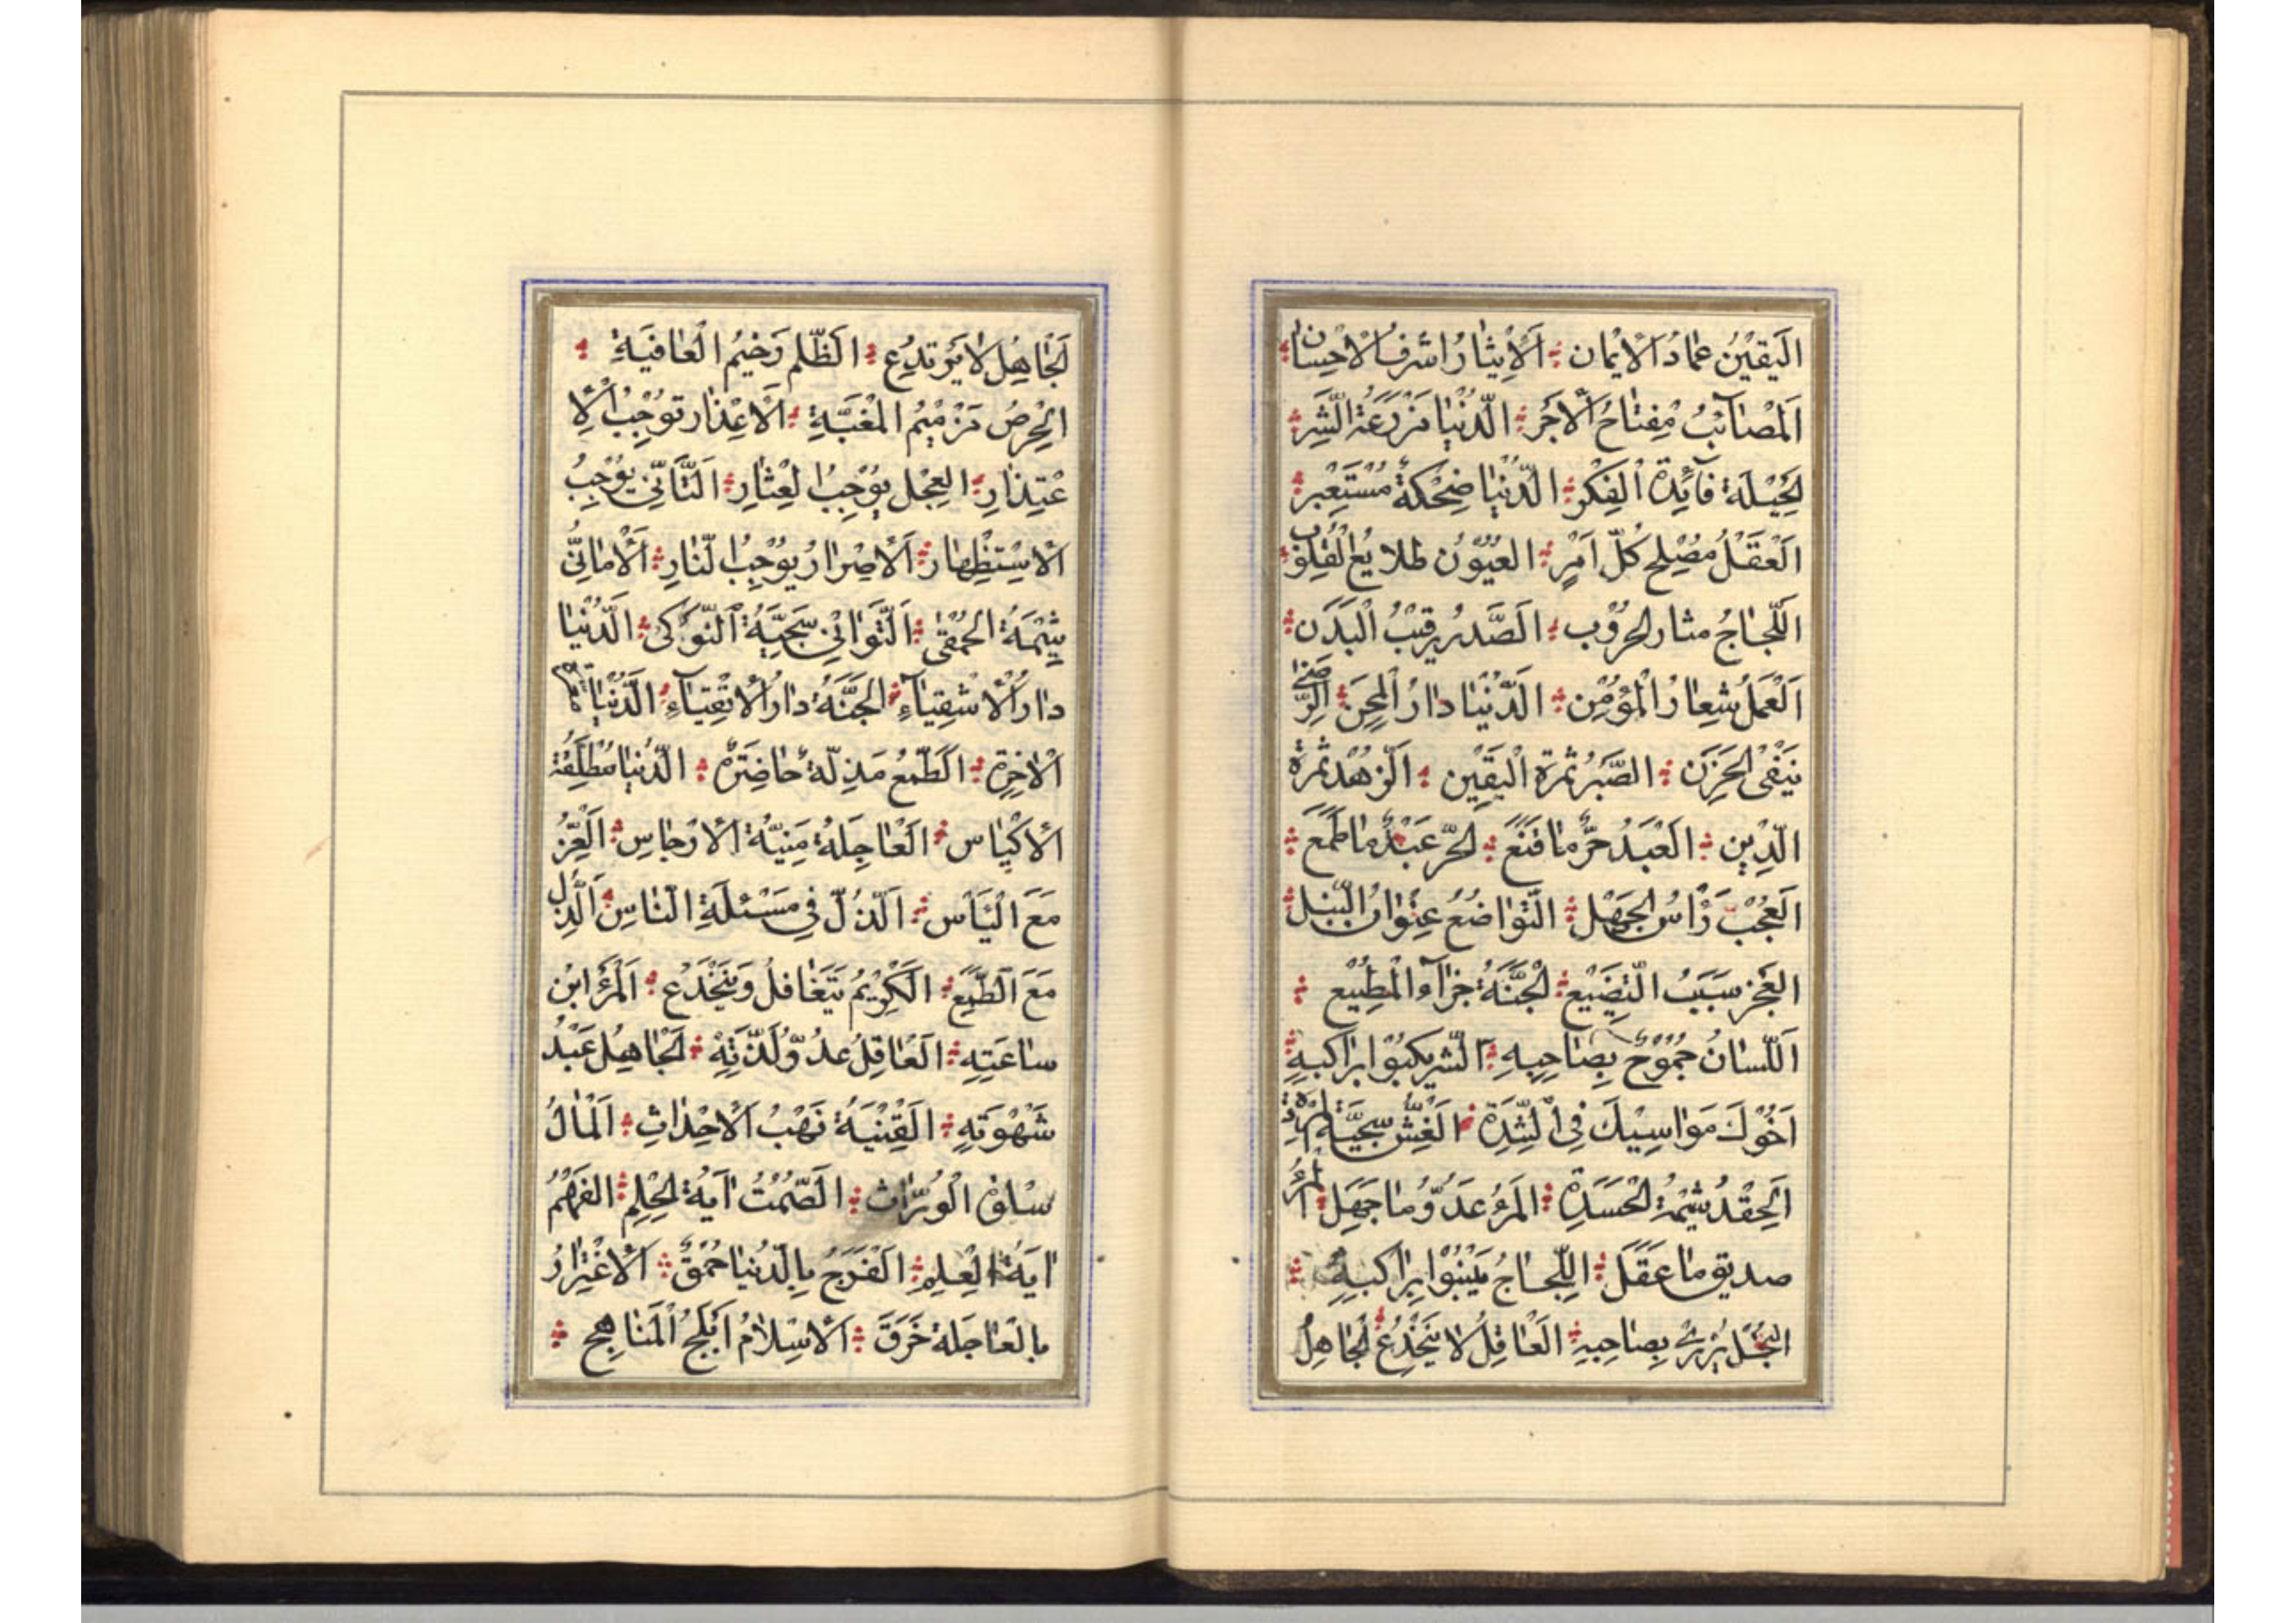 اَلْيَقيْنُ عِمٰادُ الْاِيْمٰان اَلْاِيْثٰارُ اشرفُ الْاحْسٰان
اَلْمَصٰآئِبُ مِفْتٰاحُ الْاَجْر الدُّنْيٰا مَزْرَعَةُ الشَّرِ
لْحِيْلَة فٰآئِدَةُ الْفِكْرِ الدُّنْيٰا ضِحْكَةُ مُسْتَعْبِر
اَلْعَقْلُ مُصْلِح كُلِّ اَمْرٍ العُيُوْن طَلايعُ الْقُلُوْب
اَللَّجٰاجُ مثار الحُرُوْب اَلصَّدْرُ رقِيْبُ الْبَدَن
اَلْعَمَلُ شِعٰارُ الْمُؤْمِن الدُّنْيٰا دٰارُ الْمِحَن اَلرِّضٰى
يَنْفى الْحَزَن الصَّبْرُ ثمرة الْيَقِيْن اَلزُّهْد ثَمَرَة
الدِّيْن اَلْعَبْدُ حُرٌّ مٰا قَنَعَ الْحُرّ عَبْدٌ مٰا طَمَعَ
اَلْعُجْبُ رَأْسُ الْجَهْل التَّوٰاضُعُ عِنْوٰانُ النُّبْل
الْعَجْز سَبَبُ التَّضْيْيع لْجَنَّةُ جَزٰآءُ الْمُطِيْعِ
اَللِّسٰانُ جُمُوْحٌ بِصٰاحِبِهِ اَلشَّر يكبُوْا بِرٰاكبِهِ
اَخُوْكَ مَوٰاسِيْكَ فِى الشِّدَّةِ اَلْغِشُّ سَجِيَّة الْمَرَدَةِ
اَلْحِقْدُ شِيْمَةُ الْحَسَدَةِ المَرْءُ عَدُوُّ مٰا جَهِلَ الْمَرْءُ
صديق مٰا عَقَلَ اللَّجٰاجُ يَنْبُوْا بِرٰاكبِهِ
الْبُخْل يُزْرِيْ بِصٰاحِبِهِ اَلْعٰاقِلُ لا يَنْخَدِعُ لْجٰاهِلُ
لْجٰاهِلُ لا يَرْتَدِع اَلظُّلْم وَخِيْمُ الْعٰاقبَةِ
الْحِرْصُ مَذْمِيْمُ الْمَغَبَّةِ اَلْاعْذٰار تُوْجِبُ الْاِ
عْتِذٰارِ الْعِجْل يُوْجِبُ الْعِثٰارِ التَّأَنّيْ يُوْجِبُ
الْاسْتِظْهٰار اَلْاِصْرٰارُ يُوْجِبُ النّٰارِ اَلْاَمٰانِيُّ
شِيْمَةُ الْحُمْقٰى اَلتَّوٰانِيْ سَجِيَّةُ النَّوْكىٰ الدُّنْيٰا
دٰارُ الْاَشْقِيٰآءِ الْجَنَّةُ دٰارُ الْاَتْقِيٰآءِ الدُّنْيٰا
الْاخِرَة اَلطَّمَعُ مَذِلَّة حٰاضِرَةٌ الدُّنْيٰا مُطَلَّقَة
الْاَكْيٰاس اَلْعٰاجِلَةُ مَنِيَّةُ الْاَرْجٰاسِ اَلْعِزُّ
مَعَ الْيَأْس اَلذُّلّ فِي مَسْئَلَةِ النّٰاسِ اَلذُّل
مَعَ الطَّمَع الْكَرِيْمُ يَتَغٰافلُ وَيَنْخَدِع اَلْمَرْءُ ابْن
سٰاعَتِهِ الْعٰاقِلُ عدُوُّ لَذَّتِهِ الْجٰاهِلُ عَبْدُ
شَهْوَتِهِ الْقِنْيَةُ نَهْبُ الْاَحْدٰاثِ اَلْمٰالُ
سَلْوَة الْوُرّٰاث اَلصُّمْتُ آيَةُ الْحِلْمِ الفَهْمُ
ايَةُ الْعِلْمِ اَلْفَرَح بِالدُّنْيٰا حُمْقٌ الْاِغْتِرٰارُ
بِالْعٰاجِلَة خَرَقَ اَلْاِسْلٰامُ اَبْلَجُ الْمَنٰاهِج